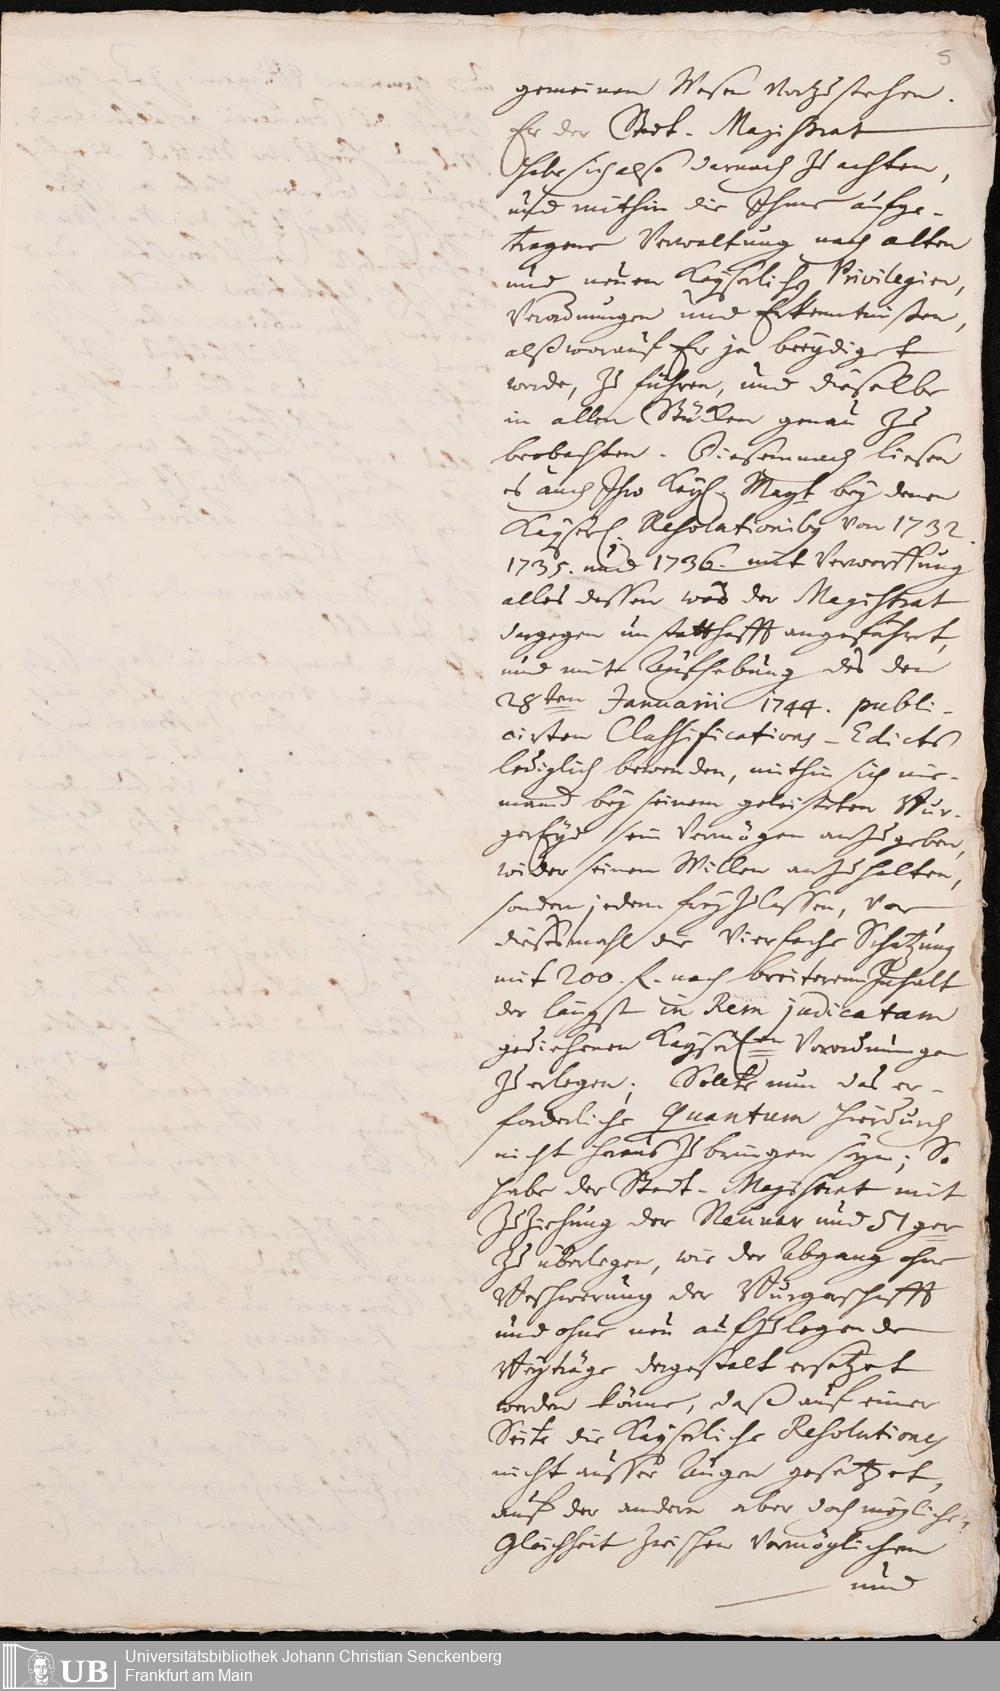 5
gemeinen Wesen vorzustehen.
Er der Stadt-Magistrat
habe sich also darnach zu achten,
und mithin die Ihme aufge-
tragene Verwaltung nach alten
und neuen Kayserlichen Privilegien,
Verordnungen und Erkenntnüßen,
alß worauf Er ja beeydiget
worde, zu führen, und dieselbe
in allen Stücken genau zu
beobachten. Diesemnach liesen
es auch Ihro Kayß. Mayt bey denen
Kayserl. Resolutionibus von 1732.
1735. und 1736. mit Verwerffung
alles dessen was der Magistrat
dagegen unstatthafft angeführt,
und mit Aufhebung des den
28ten Januarii 1744. publi-
cirten Classifications-Edicts
lediglich bewenden, mithin sich nie-
mand bey seinem geleisteten Bur-
gerEyd sein Vermögen anzugeben,
wieder seinen Willen anzuhalten,
sondern jedem frey zulassen, vor
diesesmahl die Vierfache Schatzung
mit 200. f. nach breiterem Inhalt
der längst in Rem judicatam
gediehenen Kayserlen Verordnungen
zu erlegen; Sollte nun das er-
forderliche Quantum hierdurch
nicht heraus zu bringen seyn; So
habe der Stadt-Magistrat mit
Zuziehung der Neuner und 51ger
zu überlegen, wie der Abgang ohne
Beschwerung der Burgerschafft
und ohne neu aufzulegende
Beyträge dergestalt ersetzet
werden könne, daß auf einer
Seite die Kayserliche Resolutiones
nicht ausser Augen gesetzet,
auf der andern aber doch mögliche
Gleichheit zwischen Vermöglichen
und
UB
Universitätsbibliothek Johann Christian Senckenberg
Frankfurt am Main